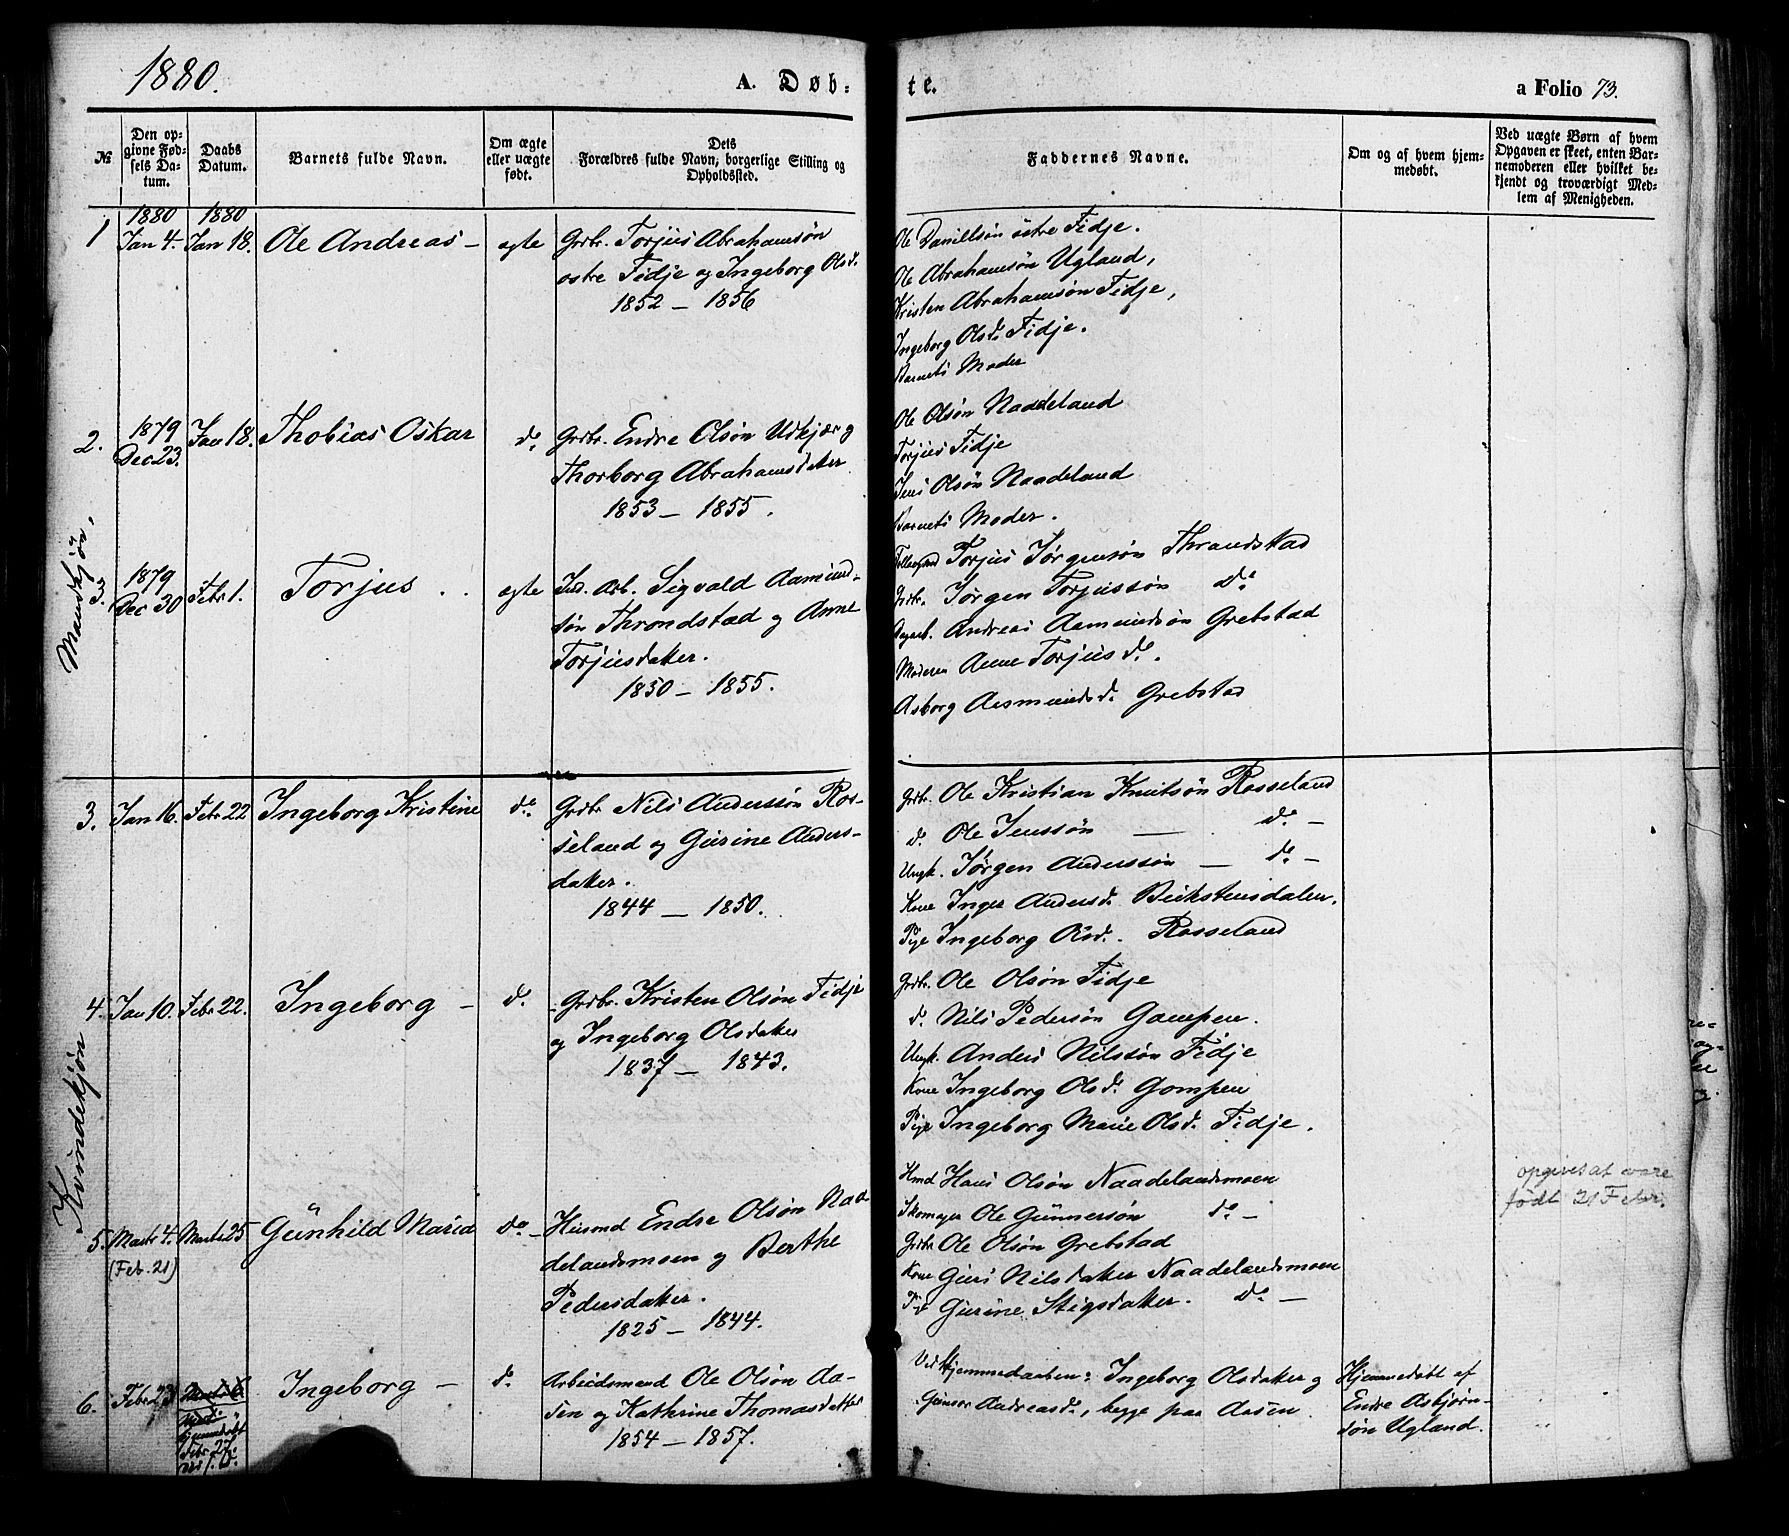 1880.
A. Døb-
te.
a Folio 73.
№
Den op-
givne Fød-
sels Da-
tum.
Daabs
Datum.
Barnets fulde Navn.
Om ægte
eller uægte
født.
Dets
Forældres fulde Navn, borgerlige Stilling og
Opholdssted.
Faddernes Navne.
Om og af hvem hjem-
medøbt.
Ved uægte Børn af hvem
Opgaven er skeet, enten Bar-
nemoderen eller hvilket be-
kjendt og troværdigt Med-
lem af Menigheden.
Mandkjøn.
1
1880
Jan 4.
1880
Jan 18.
Ole Andreas –
ægte
Grdbr. Torjus Abrahamsøn
østre Fidje og Ingeborg Olsd.
1852 – 1856
Ole Danillsøn østre Fidje.
Ole Abrahamsøn Ugland,
Kristen Abrahamsøn Fidje,
Ingeborg Olsd. Fidje.
Barnets Moder
2.
1879
Dec 23.
Jan 18.
Thobias Oskar
do.
Grdbr. Endre Olsøn Udkjær og
Thorborg Abrahamsdatter
1853 – 1855.
Ole Olsøn Naadeland
Torjus Fidje
Jens Olsøn Naadeland
Barnets Moder.
3.
1879
Dec 30
Febr 1.
Torjus . .
ægte
Ind. Arb. Sigvald Aamund-
søn Throndstad og Anne
Torjusdatter.
1850 – 1855.
Torjus Jørgensøn Thrandstad
Grdbr. Jørgen Torjussøn do.
Andreas Aamundsøn Grebstad
Moderen Anne Torjusd.
Asborg Aasmundsd. Grebstad
Kvindekjøn
3.
Jan 16.
Febr 22
Ingeborg Kristine
do.
Grdbr Nils Anderssøn Ros-
seland og Gurine Anders-
datter.
1844 – 1850.
Grdbr. Ole Kristian Knutsøn Rosseland
d. Ole Jenssøn — do. –
Ungk. Jørgen Anderssøn — do. –
Kone Inger Andersd. Birkstensdalen.
Pige Ingeborg Olsd. Rosseland
4.
Jan 10.
Febr 22.
Ingeborg –
do.
Grdbr. Kristen Olsøn Fidje
og Ingeborg Olsdatter
1837 – 1843.
Grdbr. Ole Olsøn Fidje
d. Nils Pedersøn Gampen.
Ungk. Anders Nilssøn Fidje
Kone Ingeborg Olsd. Gompen
Pige Ingeborg Marie Olsd. Fidje.
5.
Marts 4.
(Feb. 21)
Marts 25
Gunhild Maria
do. –
Husmd Endre Olsøn Naa-
delandsmoen og Berthe
Pedersdatter.
1825 – 1844.
Hmd Hans Olsøn Naadelandsmoen
Skomager Ole Gunnersøn do. –
Grdbr Ole Olsøn Grebstad
Kone Guri Nilsdatter Naadelandsmoen
Pige Gurine Stigsdatter. do. –
opgives at være
født 21 Febr.
6.
Febr 23
Hjemmedøbt
Febr 27.
Ingeborg –
do.
Arbeidsmand Ole Olsøn Aa-
sen og Kathrine Thomasdatter
1854 – 1857.
Ved Hjemmedaaben: Ingeborg Olsdatter og
Gunvor Andreasd., begge paa Aasen.
Hjemmedøbt af
Endre Asbjørn-
søn Ugland.